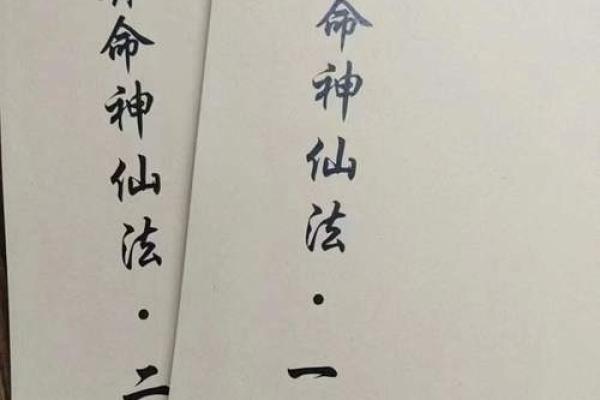 命神仙法·一
命神仙法·二